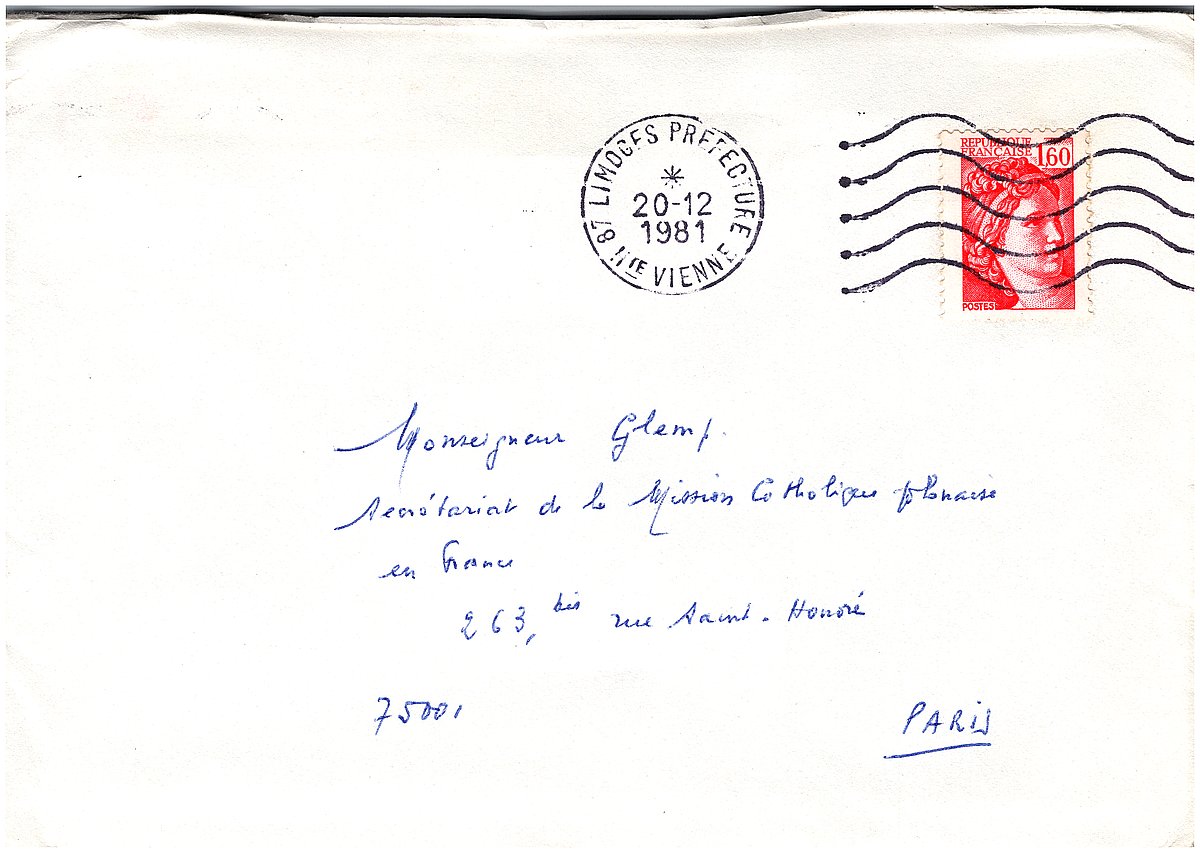 87 LIMOGES PREFECTURE
20-12
1981
Hte VIENNE
REPUBLIQUE
FRANÇAISE 1,60
POSTES
Monseigneur Glemp.
Secrétariat de la Mission Catholique polonaise
en France
263, bis rue Saint-Honoré
75001 PARIS